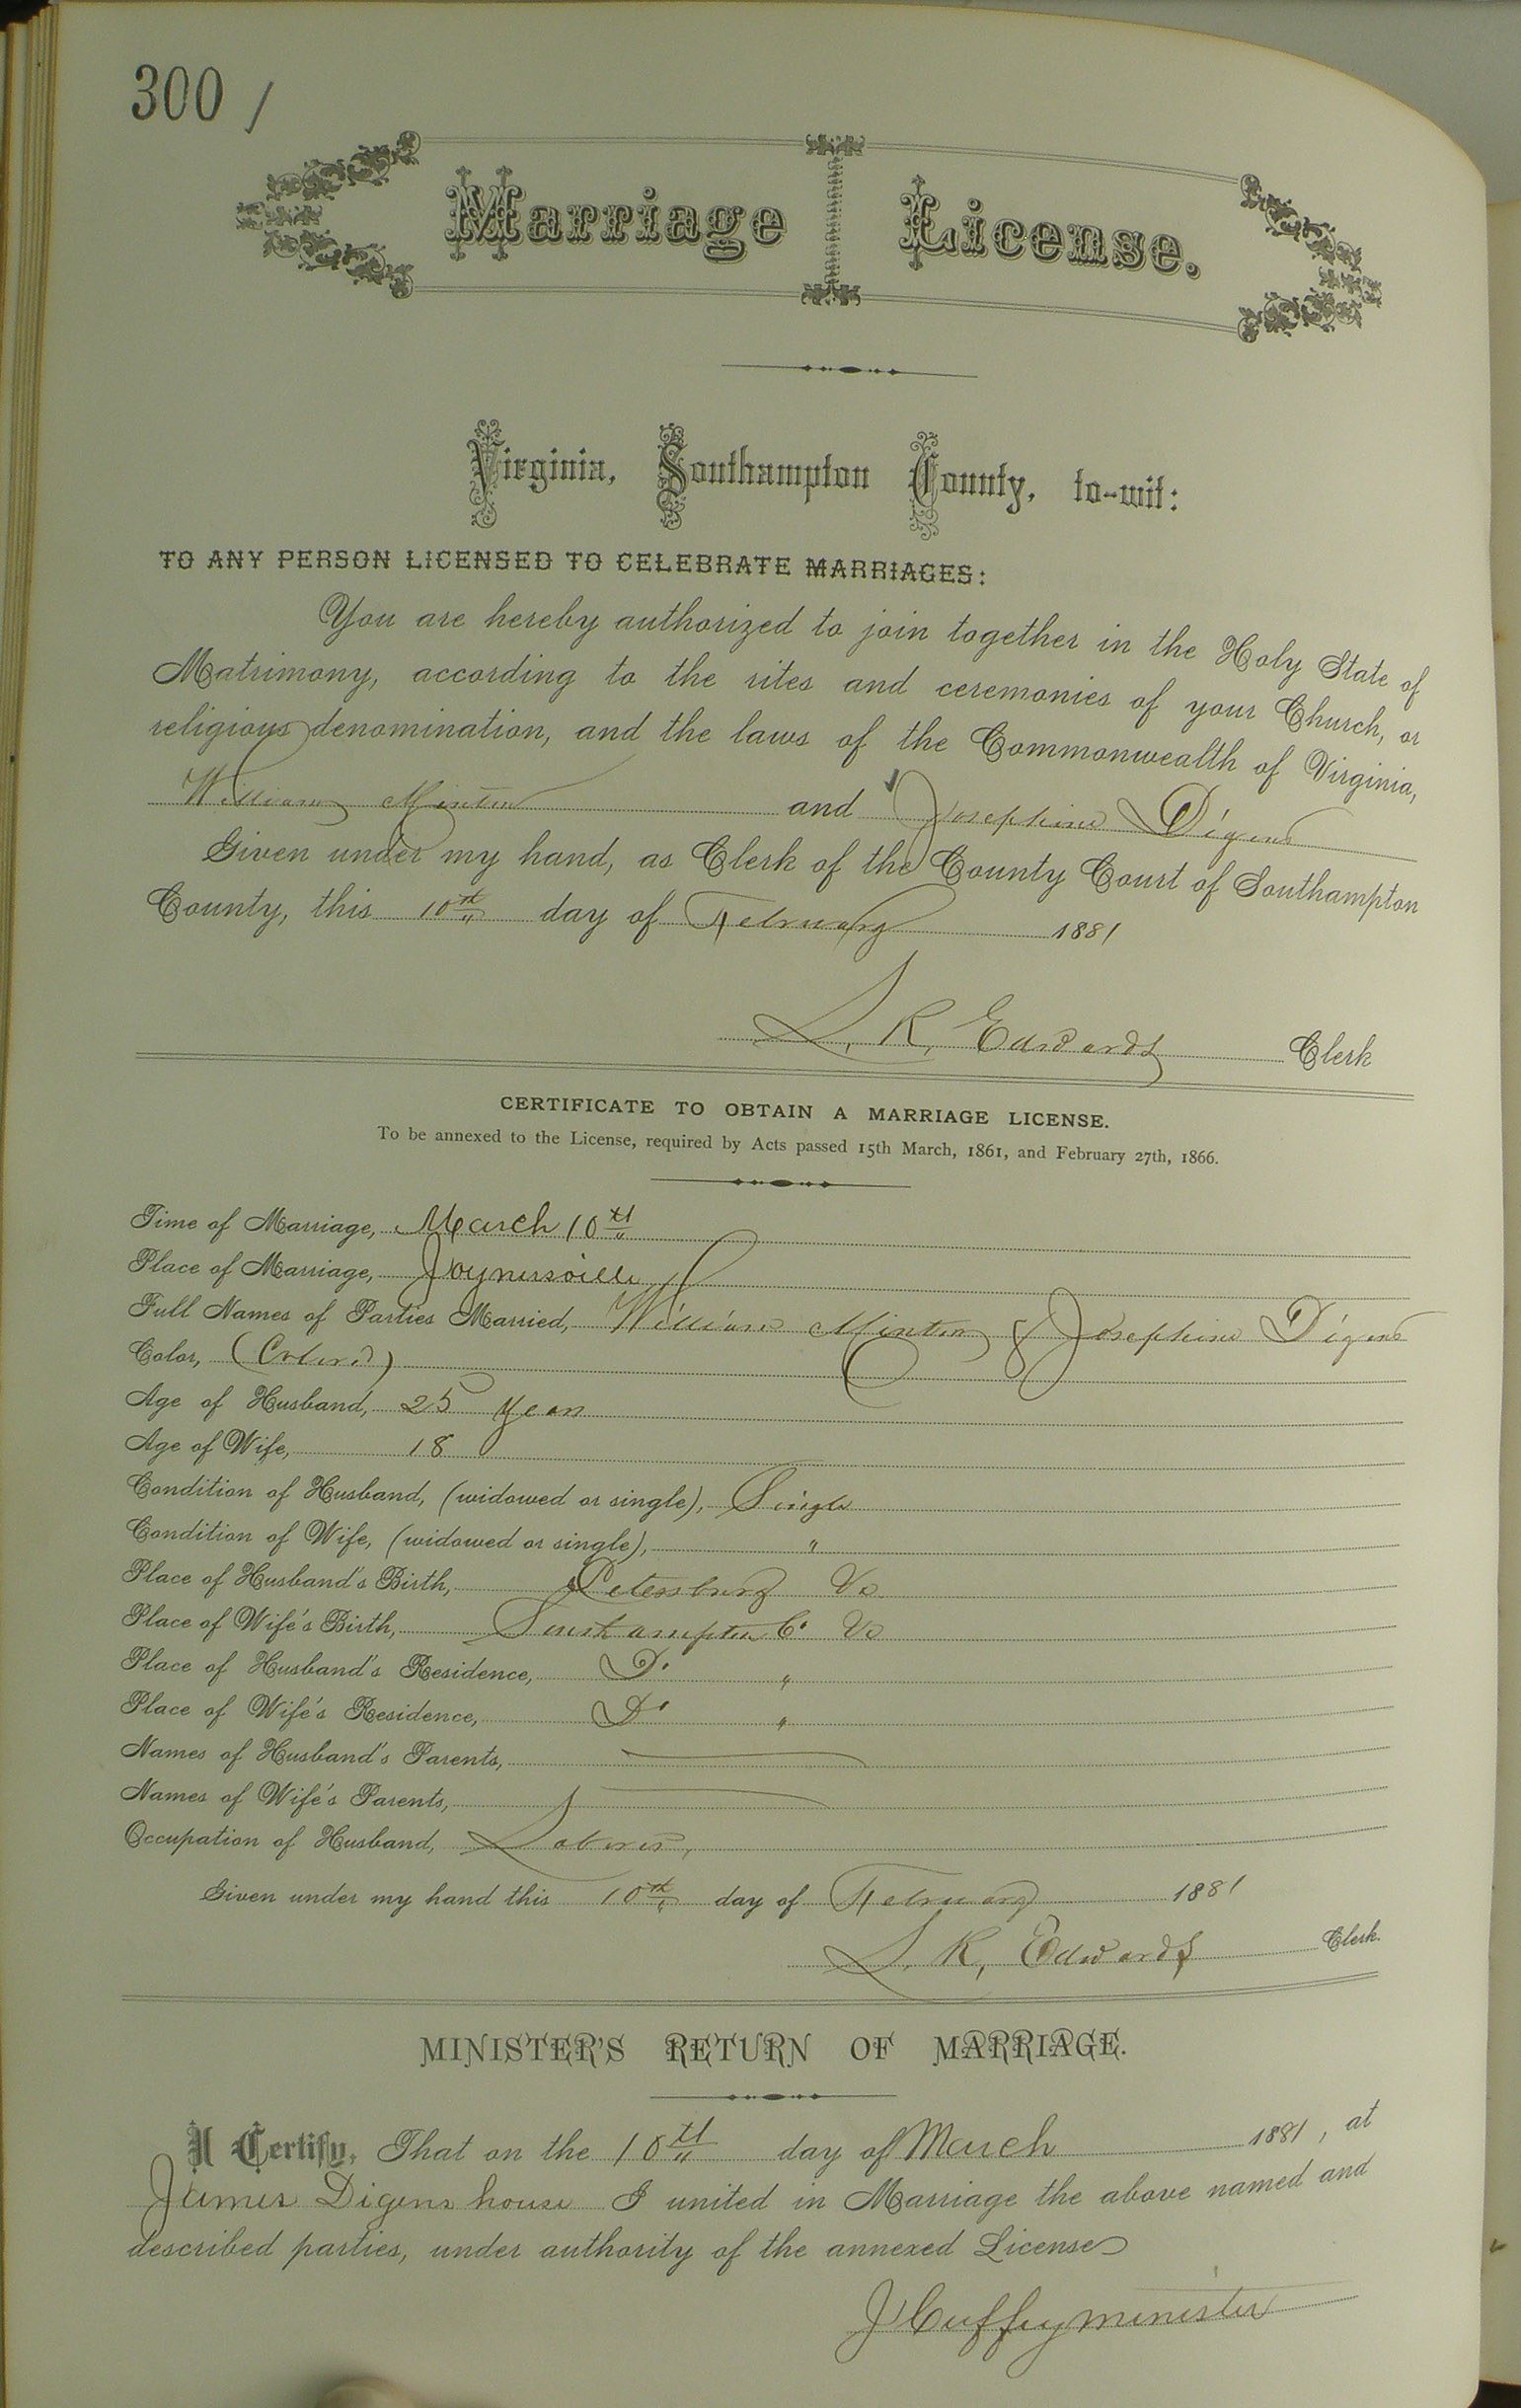 300 /
Marriage License.
Virginia, Southampton County, to-wit:
TO ANY PERSON LICENSED TO CELEBRATE MARRIAGES:
You are hereby authorized to join together in the Holy State of
Matrimony, according to the rites and ceremonies of your Church, or
religious denomination, and the laws of the Commonwealth of Virginia,
William Minton and Josephine Digens
Given under my hand, as Clerk of the County Court of Southampton
County, this 10th day of February 1881
L. R. Edwards Clerk
CERTIFICATE TO OBTAIN A MARRIAGE LICENSE.
To be annexed to the License, required by Acts passed 15th March, 1861, and February 27th, 1866.
Time of Marriage, March 10th
Place of Marriage, Joynersville
Full Names of Parties Married, William Minton & Josephine Digens
Color, (Colored)
Age of Husband, 25 years
Age of Wife, 18
Condition of Husband, (widowed or single), Single
Condition of Wife, (widowed or single), "
Place of Husband's Birth, Petersburg Va
Place of Wife's Birth, Southampton Co Va
Place of Husband's Residence, Do "
Place of Wife's Residence, Do "
Names of Husband's Parents,
Names of Wife's Parents,
Occupation of Husband, Laborer,
Given under my hand this 10th day of February 1881
L. R, Edwards Clerk.
MINISTER'S RETURN OF MARRIAGE.
I Certify, That on the 10th day of March 1881, at
James Digens house I united in Marriage the above named and
described parties, under authority of the annexed License
J Cuffey minister